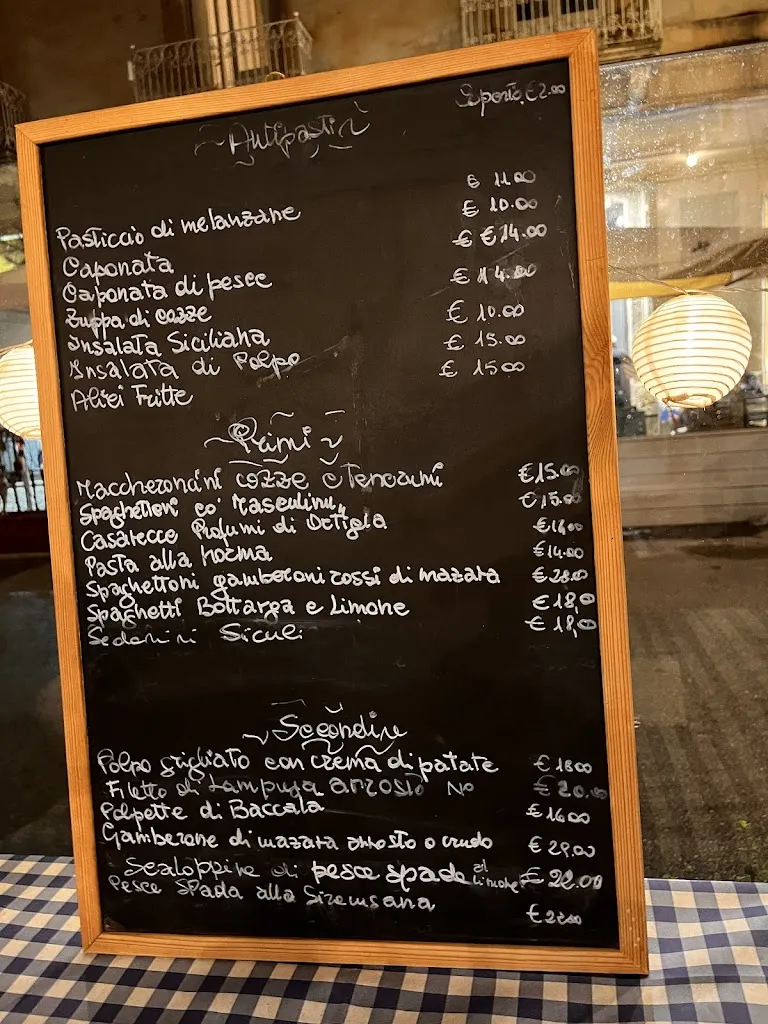 Coperto €2.00
Antipasti
Pasticcio di melanzane € 11.00
Caponata € 10.00
Caponata di pesce € €14.00
Zuppa di cozze € 14.00
Insalata Siciliana € 10.00
Insalata di Polpo € 15.00
Alici Fritte € 15.00
Primi
Maccheroncini cozze e Tenerumi €15.00
Spaghettoni co' Masculinu €15.00
Casarecce Profumi di Ortigia
Pasta alla norma €14.00
Spaghettoni gamberoni rossi di mazara €28.00
Spaghetti Bottarga e Limone €18,00
Sedanini Siculi € 18,00
Secondi
Polpo grigliato con crema di patate € 18.00
Filetto di Lampuga arrosto No € 20.00
Polpette di Baccala € 16.00
Gamberone di mazara arrosto o crudo
Scaloppine di pesce spada al limone € 22.00
Pesce Spada alla Siracusana € 22.00